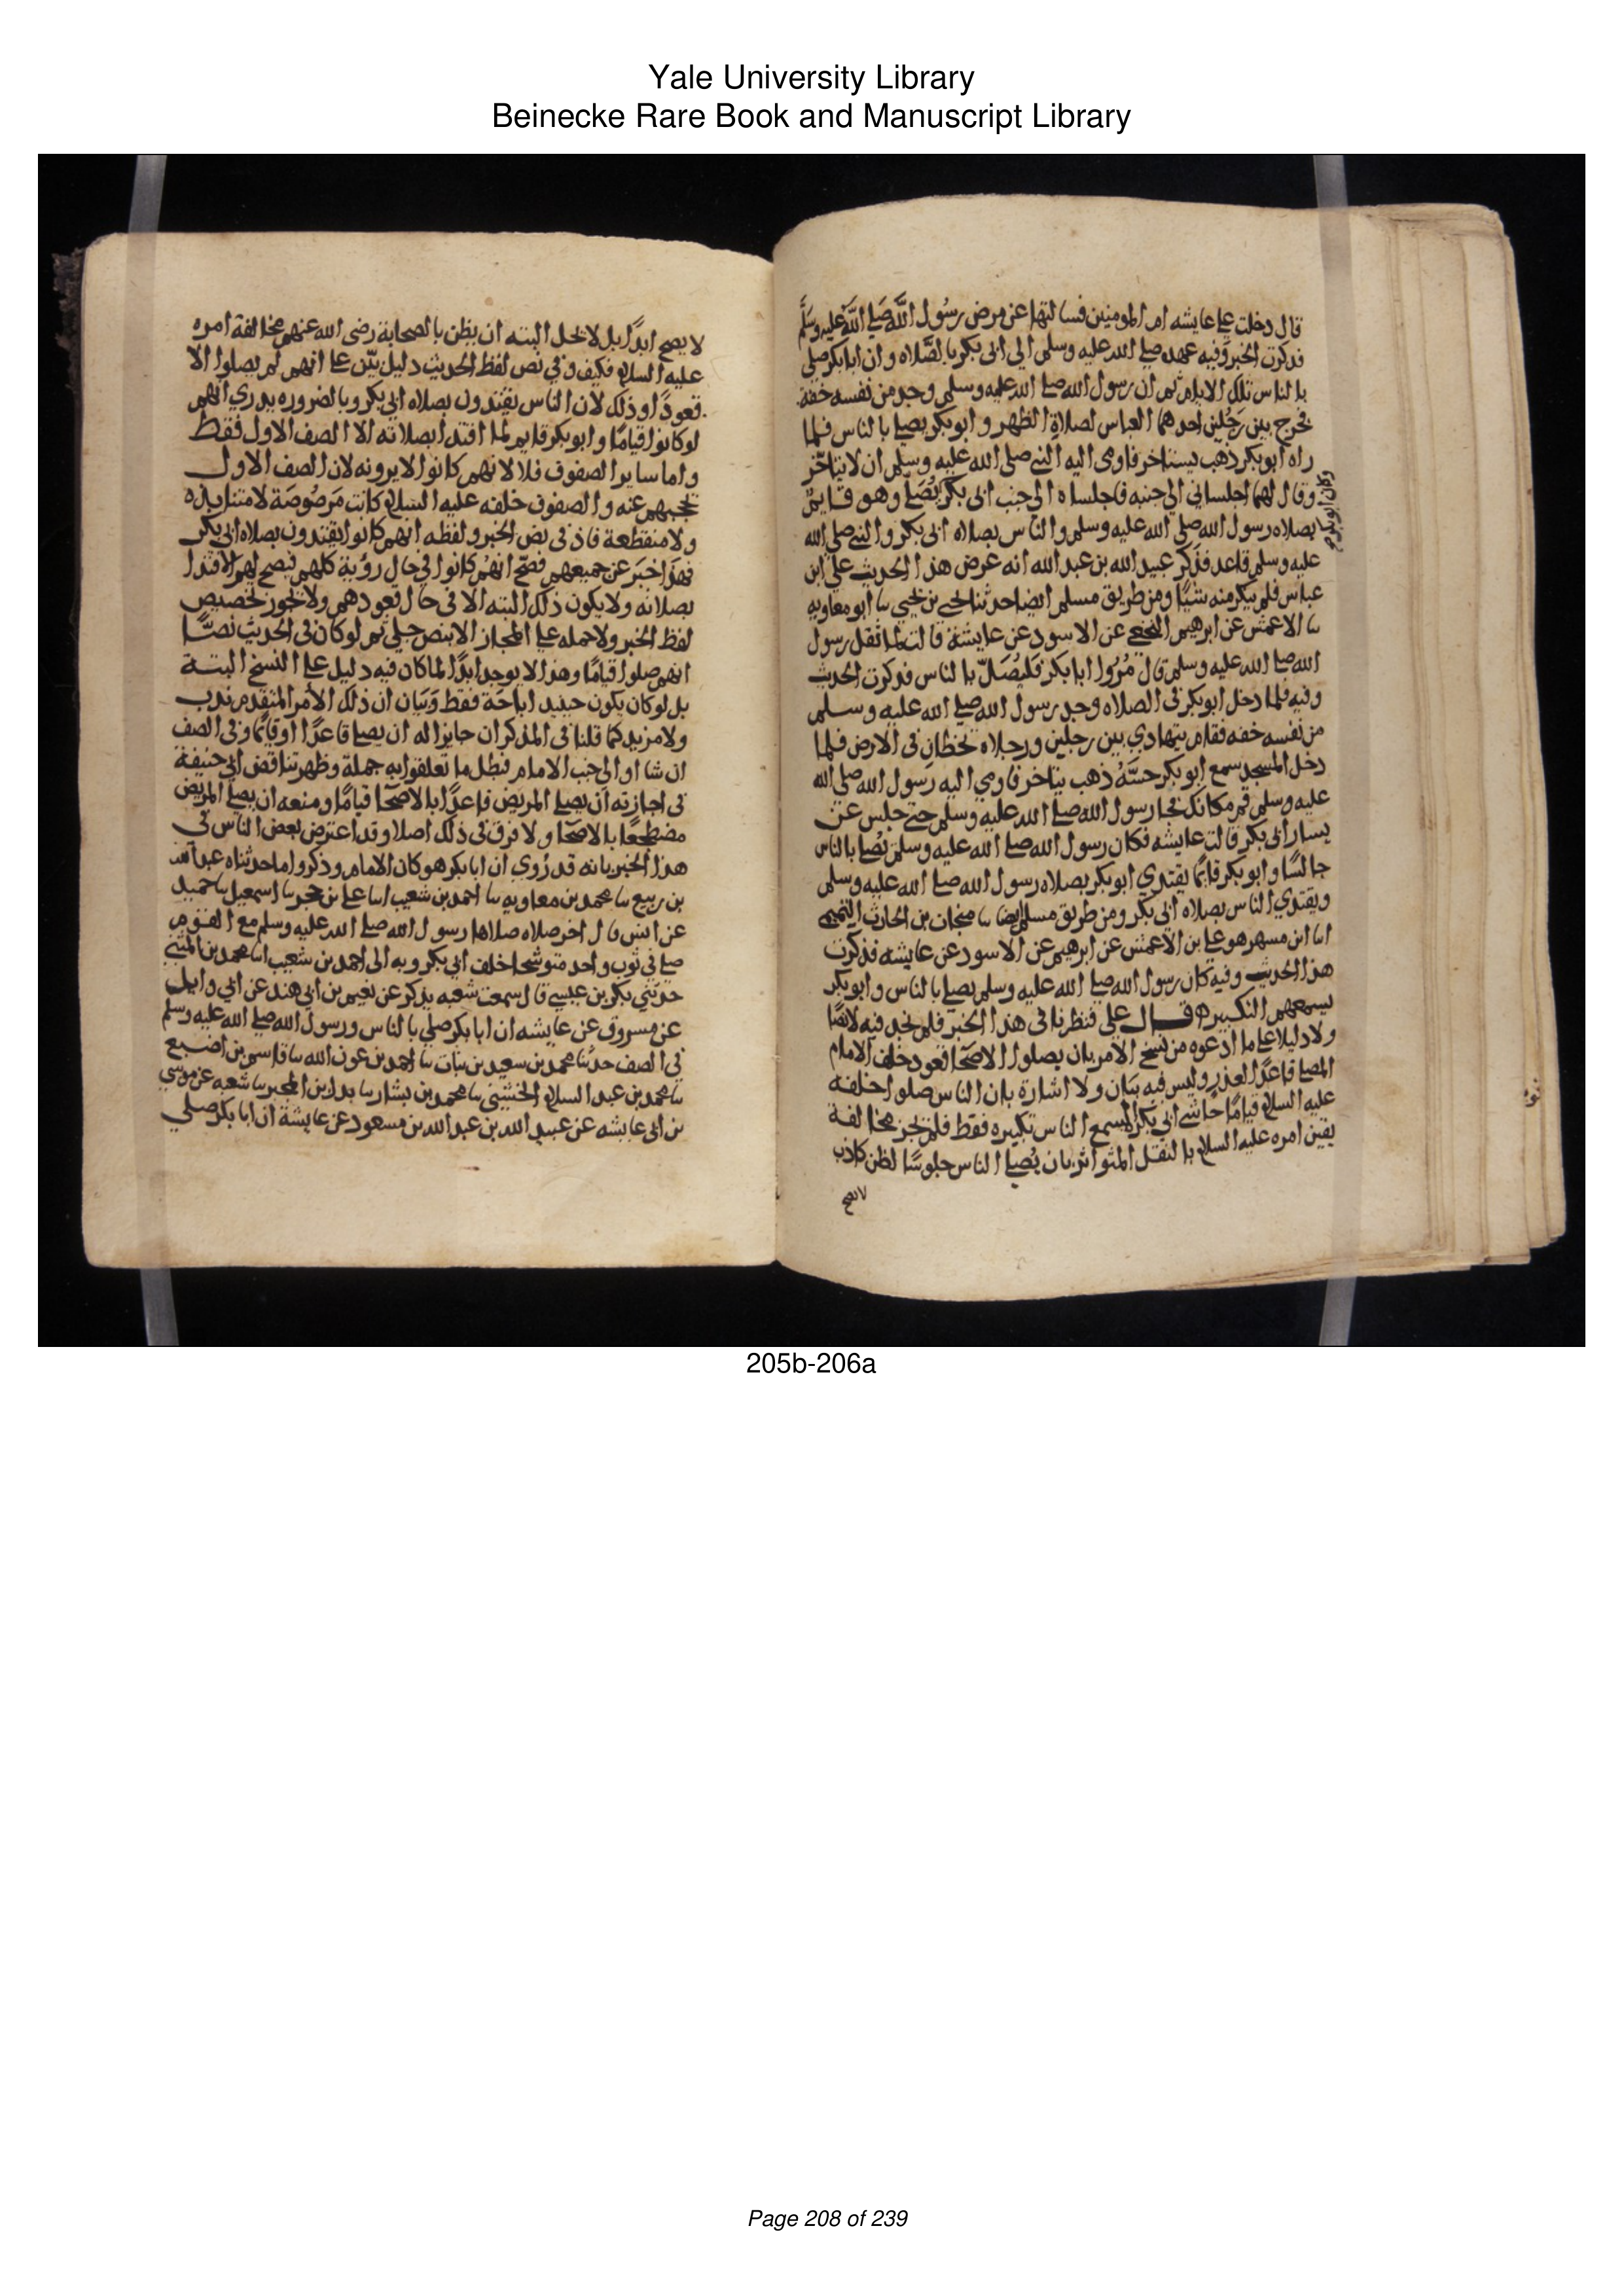 Yale University Library
Beinecke Rare Book and Manuscript Library
قال دخلت على عايشه ام المومنين فسالتها عن مرض رسول الله صلى الله عليه وسلم
فذكرت الخبر وفيه عهده صلى الله عليه وسلم الى ابي بكر بالصلاه وان ابا بكر صلى
بالناس تلك الايام ثم ان رسول الله صلى الله عليه وسلم وجد من نفسه خفة
فخرج بين رجلين احدهما العباس لصلاة الظهر وابو بكر يصلي بالناس فلما
راه ابو بكر ذهب ليستاخر فاومى اليه النبي صلى الله عليه وسلم ان لا يتاخر
وقال لهما اجلساني الى جنبه فاجلساه الى جنب ابي بكر يصلي وهو قايم
وكان ابو بكر
بصلاه رسول الله صلى الله عليه وسلم والناس بصلاه ابي بكر والنبي صلى الله
عليه وسلم قاعد فذكر عبيد الله بن عبد الله انه عرض هذا الحديث على ابن
عباس فلم ينكر منه شيا ومن طريق مسلم ايضا حدثنا يحيى بن يحيى نا ابو معاويه
نا الاعمش عن ابرهيم النخعي عن الاسود عن عايشة قالت لما ثقل رسول
الله صلى الله عليه وسلم قال مروا ابا بكر فليصل بالناس فذكرت الحديث
وفيه فلما دخل ابو بكر في الصلاه وجد رسول الله صلى الله عليه وسلم
من نفسه خفه فقام يتهادي بين رجلين ورجلاه تخطان في الارض فلما
دخل المسجد سمع ابو بكر حسه ذهب يتاخر فاومي اليه رسول الله صلى الله
عليه وسلم قم مكانك فجا رسول الله صلى الله عليه وسلم حتى جلس عن
يسار ابي بكر قالت عايشه فكان رسول الله صلى الله عليه وسلم يصلي بالناس
جالسا وابو بكر قايما يقتدي ابو بكر بصلاه رسول الله صلى الله عليه وسلم
ويقتدي الناس بصلاه ابي بكر ومن طريق مسلم ايضا نا منجاب بن الحارث التميمي
انا ابن مسهر هو علي بن الاعمش عن ابرهيم عن الاسود عن عايشه فذكرت
هذا الحديث وفيه كان رسول الله صلى الله عليه وسلم يصلي بالناس وابو بكر
يسمعهم التكبير ه قال علي فنظرنا في هذا الخبر فلم نجد فيه لا نصا
ولا دليلا على ما ادعوه من نسخ الامر بان يصلوا الاصحا قعود خلف الامام
المصلي قاعدا لعذر وليس فيه بيان ولا اشارة بان الناس صلوا خلفه
عليه السلام قياما حاشي ابي بكر المسمع الناس تكبيره فقط فلم تجز مخالفة
يقين امره عليه السلام بالنقل المتواتر بان يصلي الناس جلوسا لظن كاذب
لا يصح
لا يصح ابدا بل لا يحل البته ان يظن بالصحابة رضي الله عنهم مخالفة امره
عليه السلام فكيف وفي نص لفظ الحديث دليل بين على انهم لم يصلوا الا
قعودا وذلك لان الناس يقتدون بصلاه ابي بكر وبالضروره يدري انهم
لو كانوا قياما وابو بكر قايم لما اقتدا بصلاته الا الصف الاول فقط
واما ساير الصفوف فلا لانهم كانوا لا يرونه لان الصف الاول
يحجبهم عنه والصفوف خلفه عليه السلام كانت مرصوصة لا متنابذه
ولا منقطعة فاذ في نص الخبر ولفظه انهم كانوا يقتدون بصلاه ابي بكر
فهذا خبر عن جميعهم فصح انهم كانوا في حال رؤية كلهم فيصح لهم الاقتدا
بصلاته ولا يكون ذلك البته الا في حال قعودهم ولا يجوز تخصيص
لفظ الخبر ولا حمله على المجاز الا بنص جلي ثم لو كان في الحديث نصا
انهم صلوا قياما وهذا لا يوجد ابدا لما كان فيه دليل على النسخ البتة
بل لو كان يكون حينيد اباحة فقط وبيان ان ذلك الامر المتقدم ندب
ولا مزيد كما قلنا في المذكر ان جايزا له ان يصلي قاعدا او قايما وفي الصف
ان شا او الى جنب الامام فبطل ما تعلقوا به جملة وظهر تناقض ابي حنيفة
في اجازته ان يصلي المريض قاعدا بالاصحا قياما ومنعه ان يصلي المريض
مضطجعا بالاصحا ولا فرق في ذلك اصلا وقد اعترض بعض الناس في
هذا الخبر بانه قد روي ان ابا بكر هو كان الامام وذكروا ما حدثناه عبد الله
بن ربيع نا محمد بن معاويه نا احمد بن شعيب انا علي بن حجر نا اسمعيل نا حميد
عن انس قال اخر صلاه صلاها رسول الله صلى الله عليه وسلم مع القوم
صلى في ثوب واحد متوشحا خلف ابي بكر وبه الى احمد بن شعيب انا محمد بن المثنى
حدثني بكر بن عيسي قال سمعت شعبه يذكر عن نعيم بن ابي هند عن ابي وايل
عن مسروق عن عايشه ان ابا بكر صلي بالناس ورسول الله صلى الله عليه وسلم
في الصف حدثنا محمد بن سعيد بن نبات نا احمد بن عون الله نا قاسم بن اصبغ
نا محمد بن عبد السلام الخشني نا محمد بن بشار نا بدل بن المحبر نا شعبه عن موسي
بن ابي عايشه عن عبيد الله بن عبد الله بن مسعود عن عايشة ان ابا بكر صلي
205b-206a
Page 208 of 239